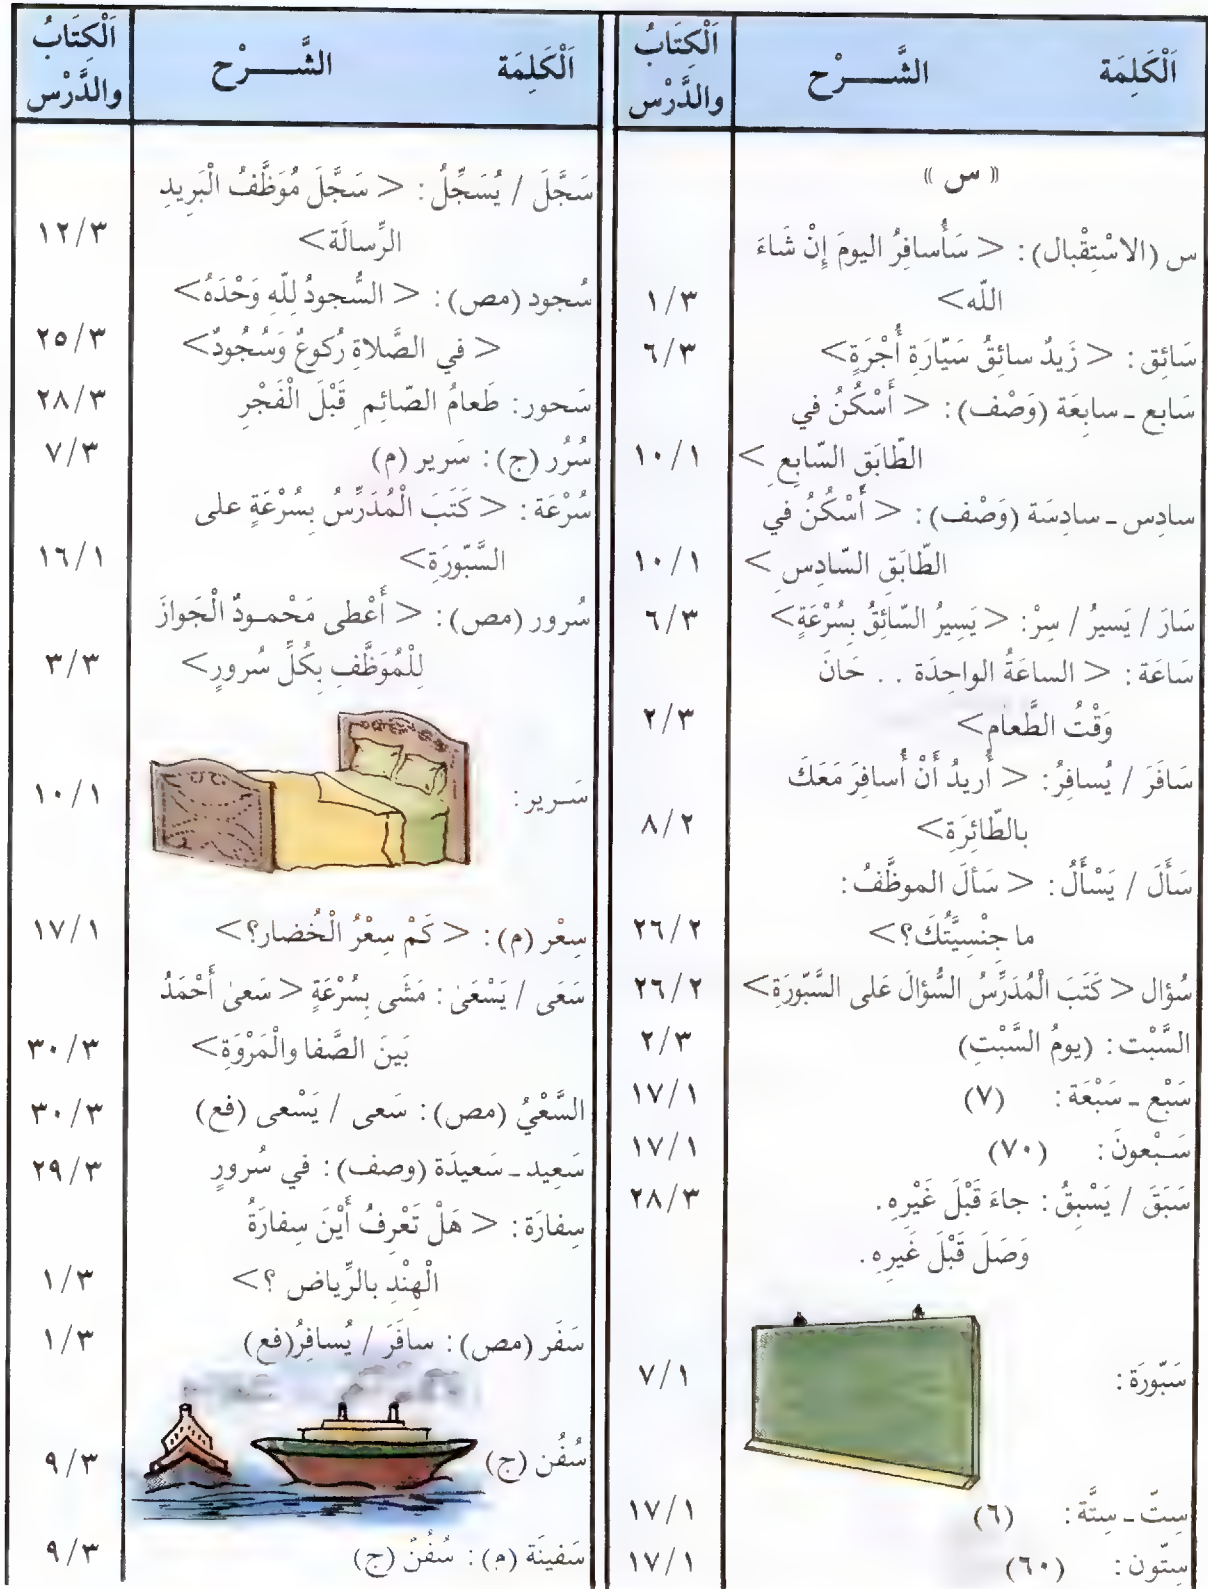 اَلْكَلِمَة الشَّـــرْح اَلْكِتَابُ والدَّرْس
« س »
س (الاسْتِقْبال): < سَأُسافِرُ اليومَ إِنْ شَاءَ
اللّه> ٣/١
سَائِق: < زَيدٌ سائِقُ سَيّارَةِ أُجْرَةٍ> ٣/٦
سَابع ـ سابِعَة (وَصْف): < أَسْكُنُ في
الطّابَقِ السّابِعِ > ١/١٠
سادِس ـ سادِسَة (وَصْف): < أَسْكُنُ في
الطّابَقِ السّادِسِ > ١/١٠
سَارَ / يَسيرُ / سِرْ: < يَسِيرُ السّائِقُ بِسُرْعَةٍ> ٣/٦
سَاعَة: < الساعَةُ الواحِدَة . . حَانَ
وَقْتُ الطَّعامِ> ٣/٢
سَافَرَ / يُسافِرُ: < أُريدُ أَنْ أُسافِرَ مَعَكَ
بالطّائِرَةِ> ٢/٨
سَأَلَ / يَسْأَلُ: < سَألَ الموظَّفُ:
ما جِنْسِيَّتُكَ؟> ٢/٢٦
سُؤال < كَتَبَ الْمُدَرِّسُ السُّؤالَ عَلى السَّبّورَةِ> ٢/٢٦
السَّبْت: (يومُ السَّبْتِ) ٣/٢
سَبْع ـ سَبْعَة: (٧) ١/١٧
سَـبْعونَ: (٧٠) ١/١٧
سَبَقَ / يَسْبِقُ: جاءَ قَبْلَ غَيْرِهِ. ٣/٢٨
وَصَلَ قَبْلَ غَيرِهِ.
سَبّورَة: ١/٧
سِتّ ـ سِتَّة: (٦) ١/١٧
سِتّون: (٦٠) ١/١٧
اَلْكَلِمَة الشَّـــرْح اَلْكِتَابُ والدَّرْس
سَجَّلَ / يُسَجِّلُ: < سَجَّلَ مُوَظَّفُ الْبَريدِ
الرِّسالَة> ٣/١٢
سُجود (مص): < السُّجودُ لِلّهِ وَحْدَهُ>
< في الصَّلاةِ رُكوعٌ وَسُجُودٌ> ٣/٢٥
سَحور: طَعامُ الصّائِمِ قَبْلَ الْفَجْرِ ٣/٢٨
سُرُر (ج): سَرير (م) ٣/٧
سُرْعَة: < كَتَبَ الْمُدَرِّسُ بِسُرْعَةٍ على
السَّبّورَةِ> ١/١٦
سُرور (مص): < أَعْطى مَحْمـودٌ الْجَوازَ
لِلْمُوَظَّفِ بِكُلِّ سُرورٍ> ٣/٣
سَـرير: ١/١٠
سِعْر (م): < كَمْ سِعْرُ الْخُضار؟> ١/١٧
سَعَى / يَسْعَىٰ: مَشَى بِسُرْعَةٍ < سَعىٰ أَحْمَدُ
بَينَ الصَّفا والْمَرْوَةِ> ٣/٣٠
السَّعْيُ (مص): سَعى / يَسْعى (فع) ٣/٣٠
سَعِيد ـ سَعيدَة (وصف): في سُرورٍ ٣/٢٩
سِفارَة: < هَلْ تَعْرِفُ أَيْنَ سِفارَةُ
الْهِنْدِ بالرِّياض ؟> ٣/١
سَفَر (مص): سافَرَ / يُسافِرُ(فع) ٣/١
سُفُن (ج) ٣/٩
سَفينَة (م): سُفُنٌ (ج) ٣/٩